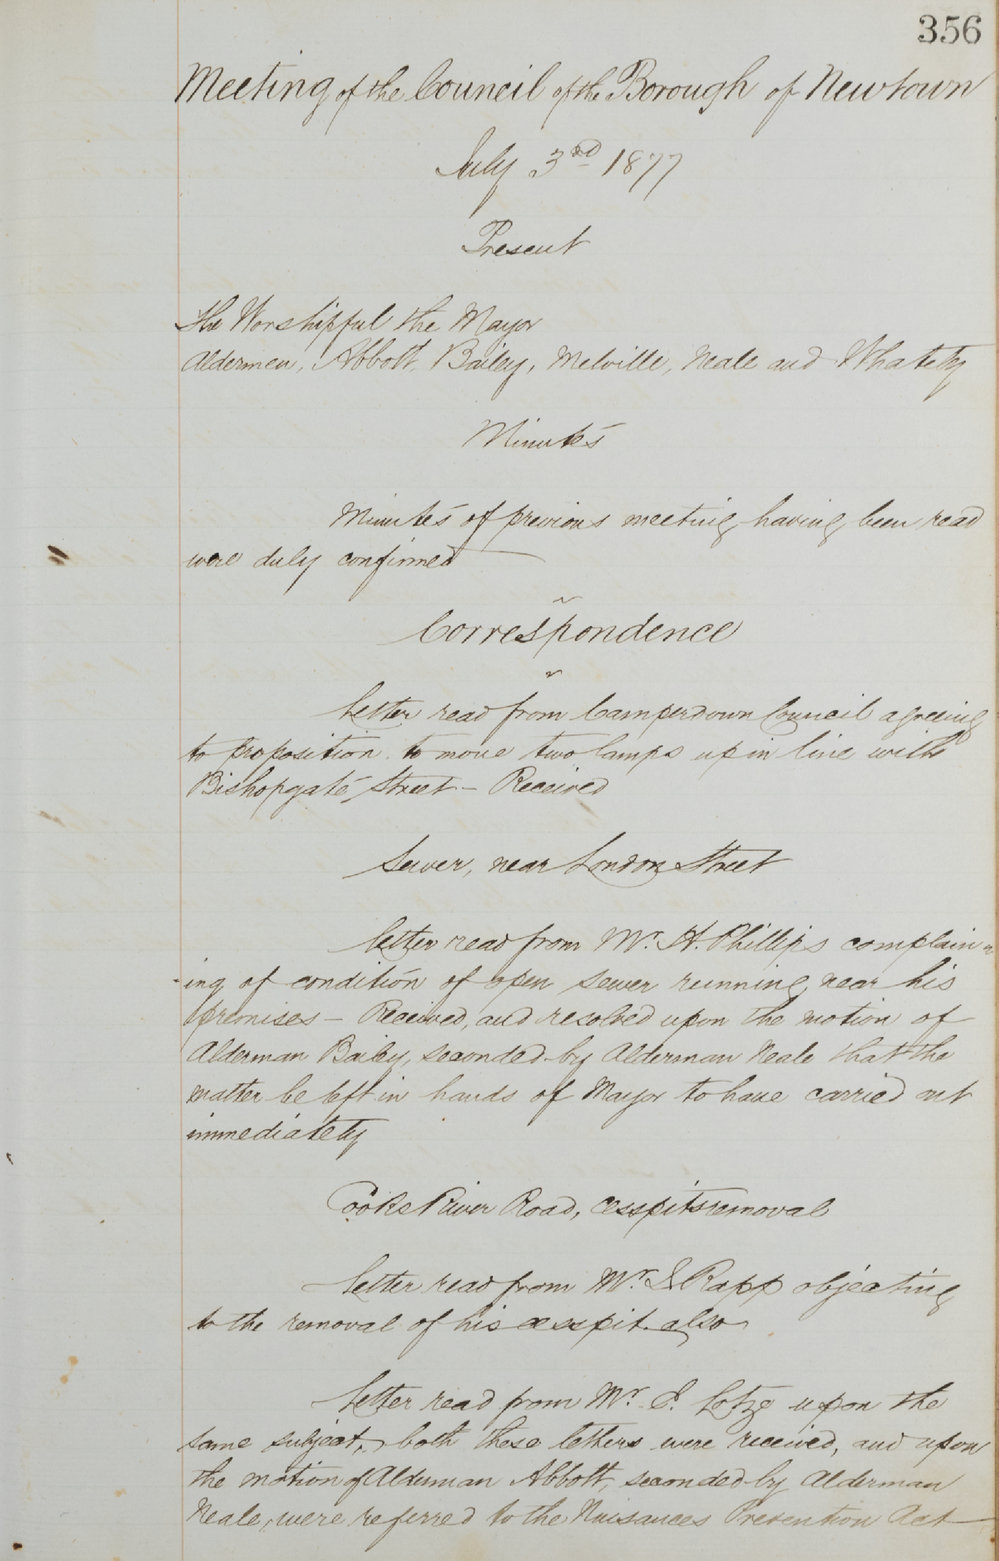 356
Meeting of the Council of the Borough of Newtown
July 3rd 1877
Present
The Worshipful the Mayor
Aldermen, Abbott, Bailey, Melville, Neale and Whately
Minutes
Minutes of previous meeting having been read
were duly confirmed
Correspondence
Letter read from Camperdown Council agreeing
to proposition to move two lamps up in line with
Bishopgate Street - Received
Sewer, near London Street
Letter read from Mr. H. Phillips complain-
-ing of condition of open sewer running near his
premises - Received, and resolved upon the motion of
Alderman Bailey, seconded by Alderman Neale that the
matter be left in hands of Mayor to have carried out
immediately
Cooks River Road, cesspits removal
Letter read from Mr. Rapp objecting
to the removal of his cesspit also
Letter read from Mr. upon the
same subject, both these letters were received, and upon
the motion of Alderman Abbott, seconded by Alderman
Neale, were referred to the Nuisances Prevention Act